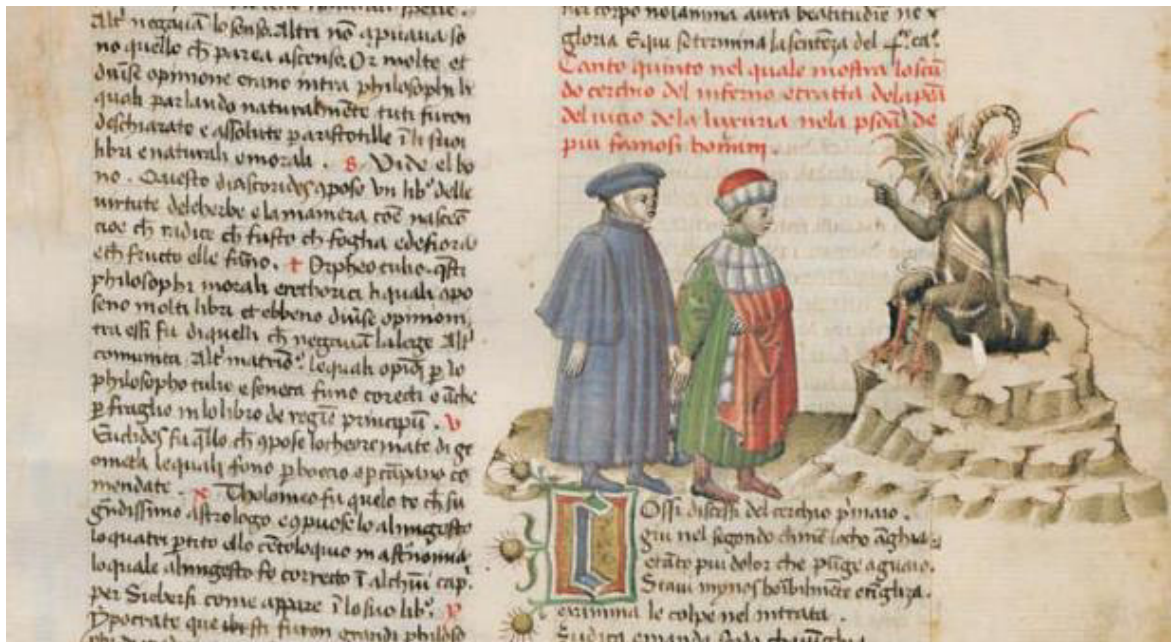 Alt' negavā lo senso. Altri nō apuava so
no quello ch parea ascenso. Or molte et
divise opinione erano intra philosophi li
quali parlando naturalmēte tuti furon
deschiarate e assolute p aristotille ī li suoi
libri e naturali o morali. s Vide el bo
no. Questo diascorides 9pose un lib° delle
virtute delcherbe e la mainera coē nascē
cioe ch radice ch fusto ch fogha e de fiora
ech fructo elle fāno. t Orpheo tulio. q̄sti
philosophi morali e rethorici li quali 9po
seno molti libri et ebbeno divise opinioni
tra essi fu di quelli ch negavā la lege Alt'
comunita. Alt' matrio°. le quali opiō p lo
philosopho tulio e seneca funo corecti e āche
p fraglio in lo libro de regīe principū. v
Euclides fu q̄llo ch 9pose lo theoremate di ge
ometa le quali fono p boecio
mendate. x Tholomeo fu quelo re ch fu
grādissimo astrologo e 9puose lo almigesto
lo quatri ptito ello cētoloquio in astronomia
lo quale almigesto fo correcto ī alchūi cap.
per Gieberfi come appare ī lo suo lib°. y
Ypocrate que furon grandi philoso
ne corpo no lanima aura beatitudie ne
gloria E qui se termina la sentēza del ca°.
Canto quinto nel quale mostra lo secū
do cerchio del inferno e tratta de la pēa
del vicio de la luxuria ne la psōa de
piu famosi homini.
Cossi discesi del cerchio p'maio.
giu nel segondo ch mē locho
e tāto piu dolor che pūge a guaio.
Stavi mynos horibilmente e rīghza.
examina le colpe nel intrata.
Giudica e manda